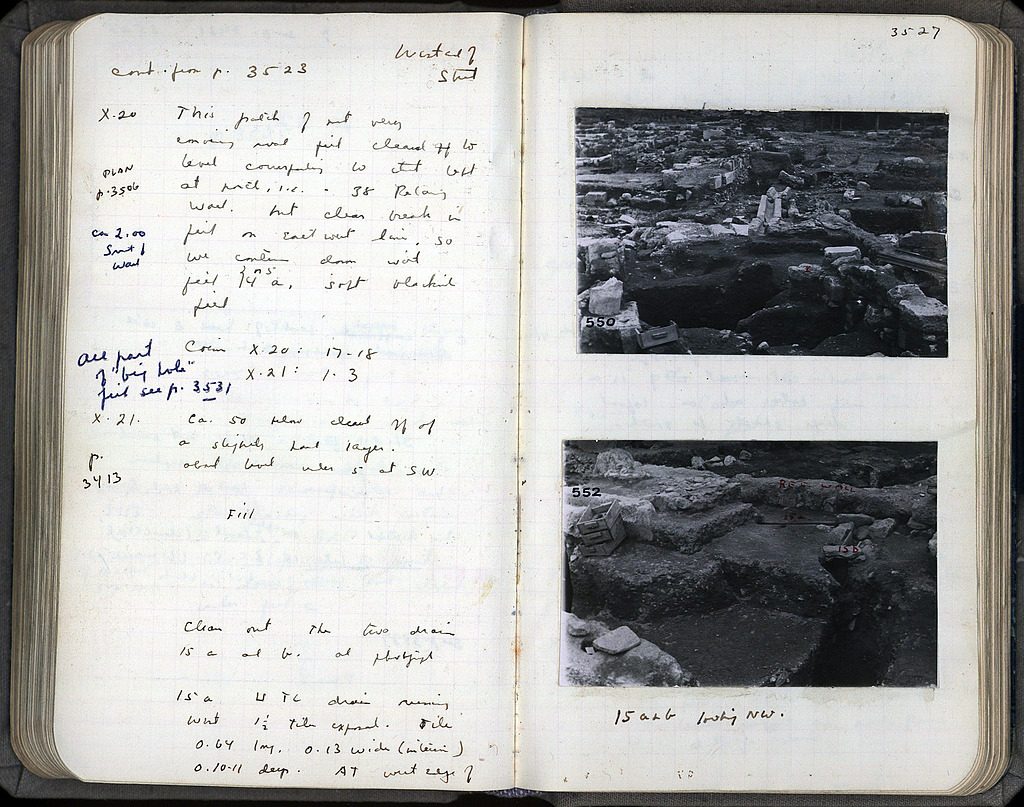 West of
Street
cont. from p. 3523
X.20 This patch of not very
fill cleared off to
PLAN level corresponding to that west
p.3506 at north, i.e. - 38 Below
wall. but clear break in
ca 2.00 fill on East west line, so
South of we continue down with
wall soft blackish
fill
All part Coins X.20: 17-18
of "big hole" X.21: 1-3
fill see p. 3531
X.21. Ca. 50 below cleared off of
a slightly hard layer.
p. about level under 5 at SW
3413
Fill
Clean out the two drains
15 a and b. and photograph
15 a is TC drain running
West 1½ tiles exposed. Tile
0.64 long. 0.13 wide (interior)
0.10-11 deep. AT west edge of
3527
550
552
15b
15 a and b looking NW.